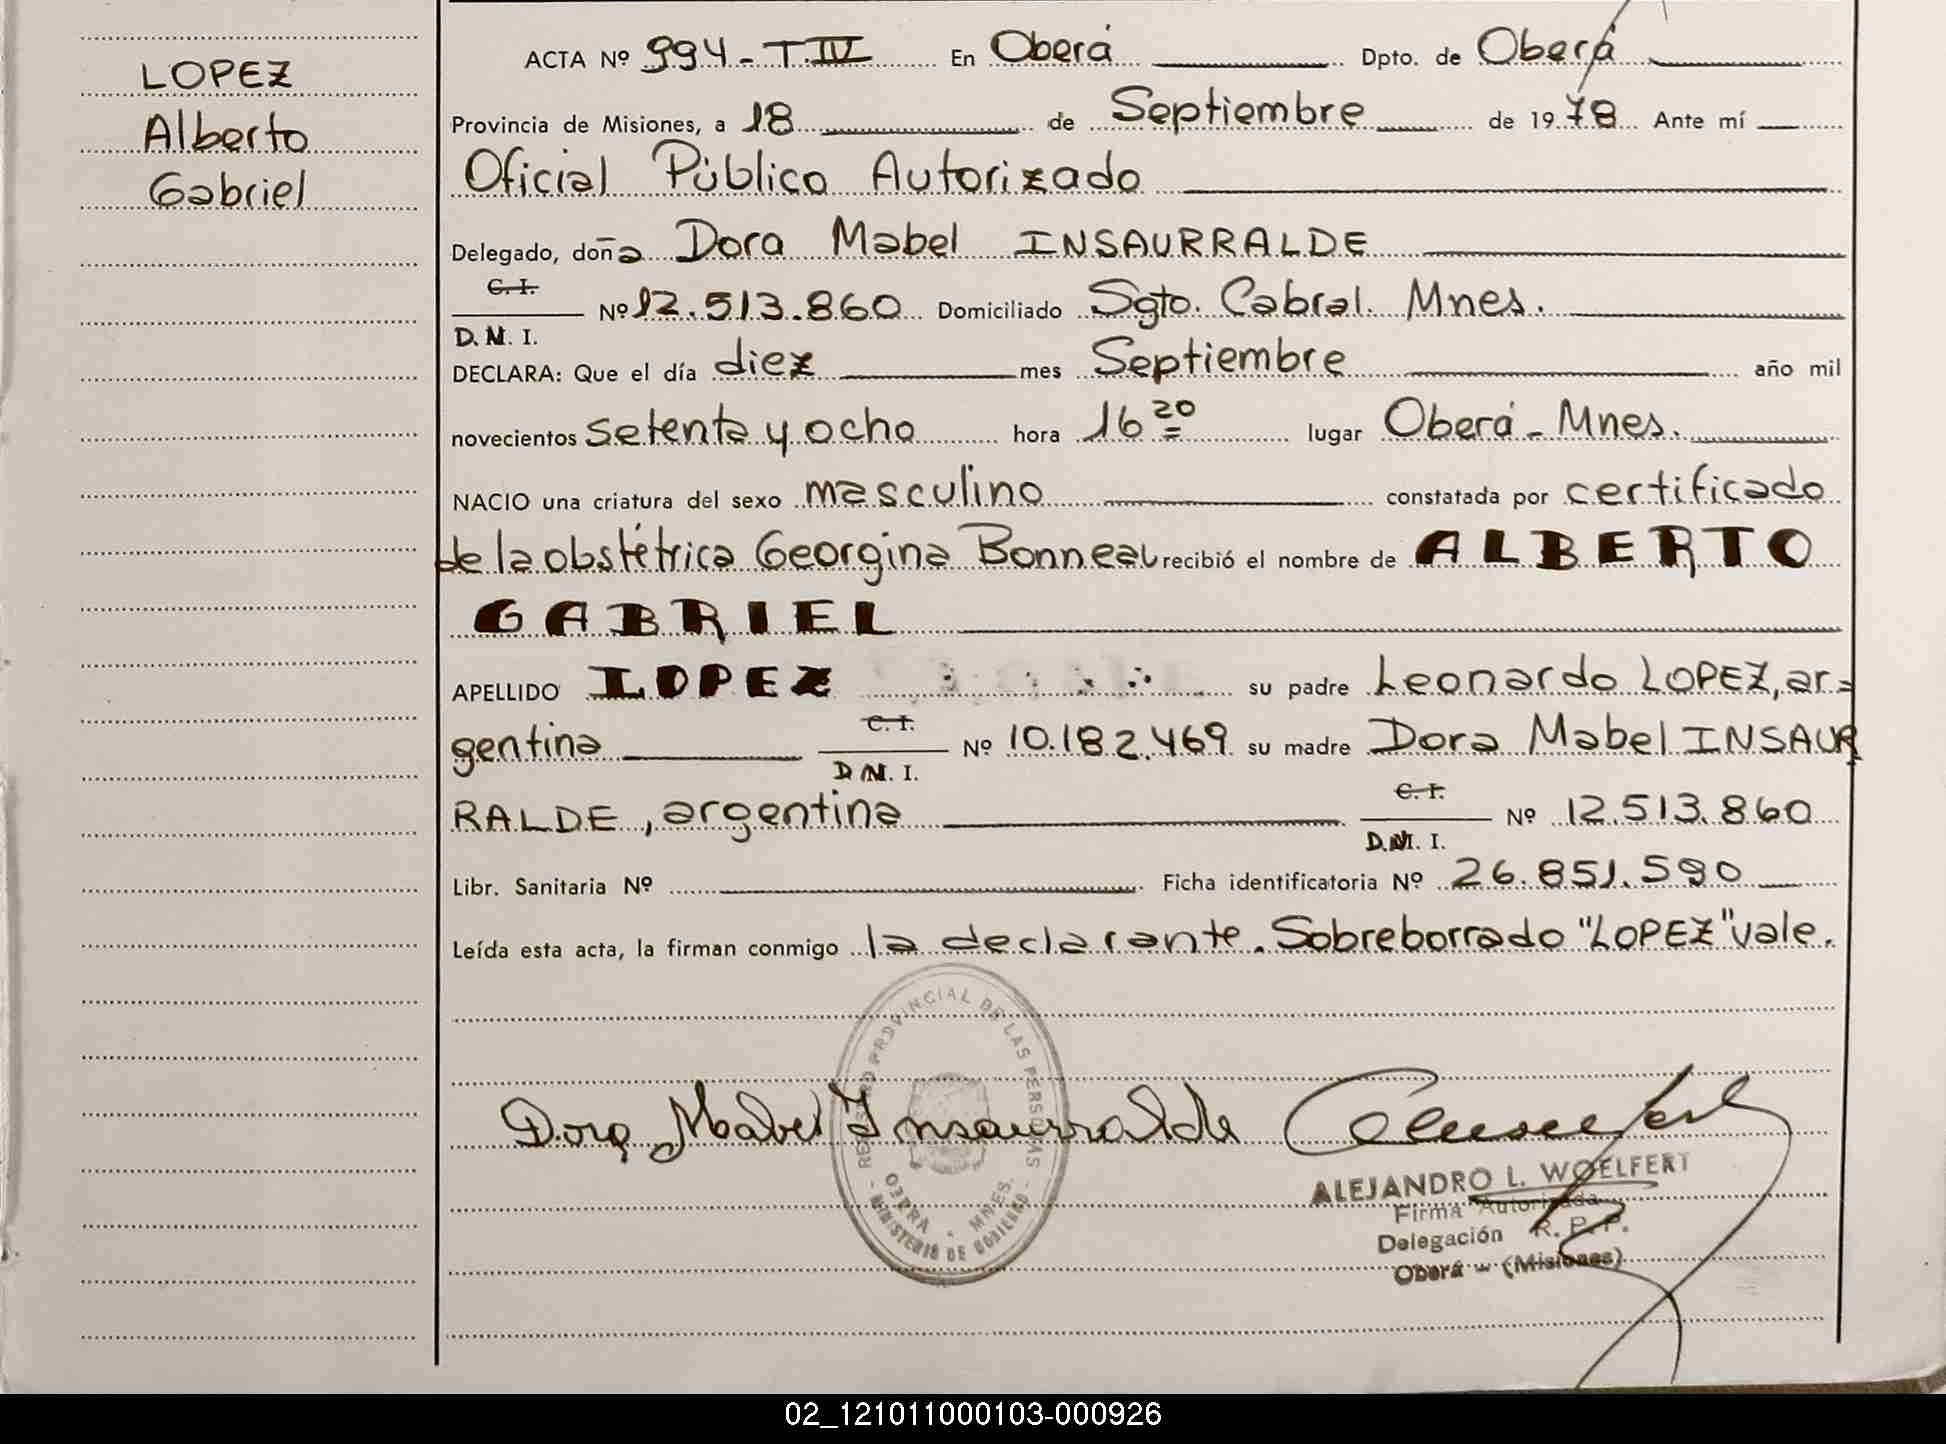 LOPEZ
Alberto
Gabriel
ACTA Nº 994 - T. IV En Oberá Dpto. de Oberá
Provincia de Misiones, a 18 de Septiembre de 1978 Ante mí
Oficial Público Autorizado
Delegado, doña Dora Mabel INSAURRALDE
C. I.
D. N. I. Nº 12.513.860 Domiciliado Sgto. Cabral. Mnes.
DECLARA: Que el día diez mes Septiembre año mil
novecientos setenta y ocho hora 16 20 lugar Oberá - Mnes.
NACIO una criatura del sexo masculino constatada por certificado
de la obstétrica Georgina Bonneau recibió el nombre de ALBERTO
GABRIEL
APELLIDO LOPEZ su padre Leonardo LOPEZ, ar-
gentina C. I. D. N. I. Nº 10.182.469 su madre Dora Mabel INSAUR
RALDE, argentina C. I. D. N. I. Nº 12.513.860
Libr. Sanitaria Nº Ficha identificatoria Nº 26.851.590
Leída esta acta, la firman conmigo la declarante. Sobreborrado "LOPEZ" vale.
REGISTRO PROVINCIAL DE LAS PERSONAS
OBERA - MNES.
MINISTERIO DE GOBIERNO
Dora Mabel Insaurralde
ALEJANDRO L. WOELFERT
Firma Autorizada
Delegación R. P. P.
Oberá - (Misiones)
02_121011000103-000926